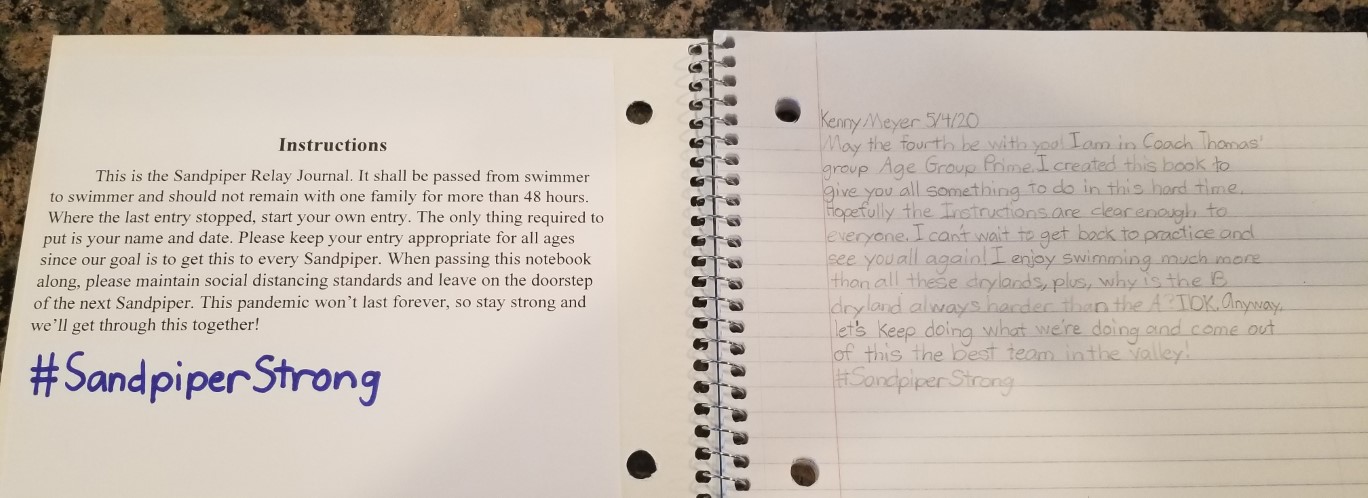 Instructions
This is the Sandpiper Relay Journal. It shall be passed from swimmer
to swimmer and should not remain with one family for more than 48 hours.
Where the last entry stopped, start your own entry. The only thing required to
put is your name and date. Please keep your entry appropriate for all ages
since our goal is to get this to every Sandpiper. When passing this notebook
along, please maintain social distancing standards and leave on the doorstep
of the next Sandpiper. This pandemic won't last forever, so stay strong and
we'll get through this together!
#SandpiperStrong
Kenny Meyer 5/4/20
May the fourth be with you! I am in Coach Thomas'
group Age Group Prime. I created this book to
give you all something to do in this hard time.
Hopefully the Instructions are clear enough to
everyone. I can't wait to get back to practice and
see you all again! I enjoy swimming much more
than all these drylands, plus, why is the B
dryland always harder than the A? IDK. Anyway,
let's keep doing what we're doing and come out
of this the best team in the valley!
#SandpiperStrong